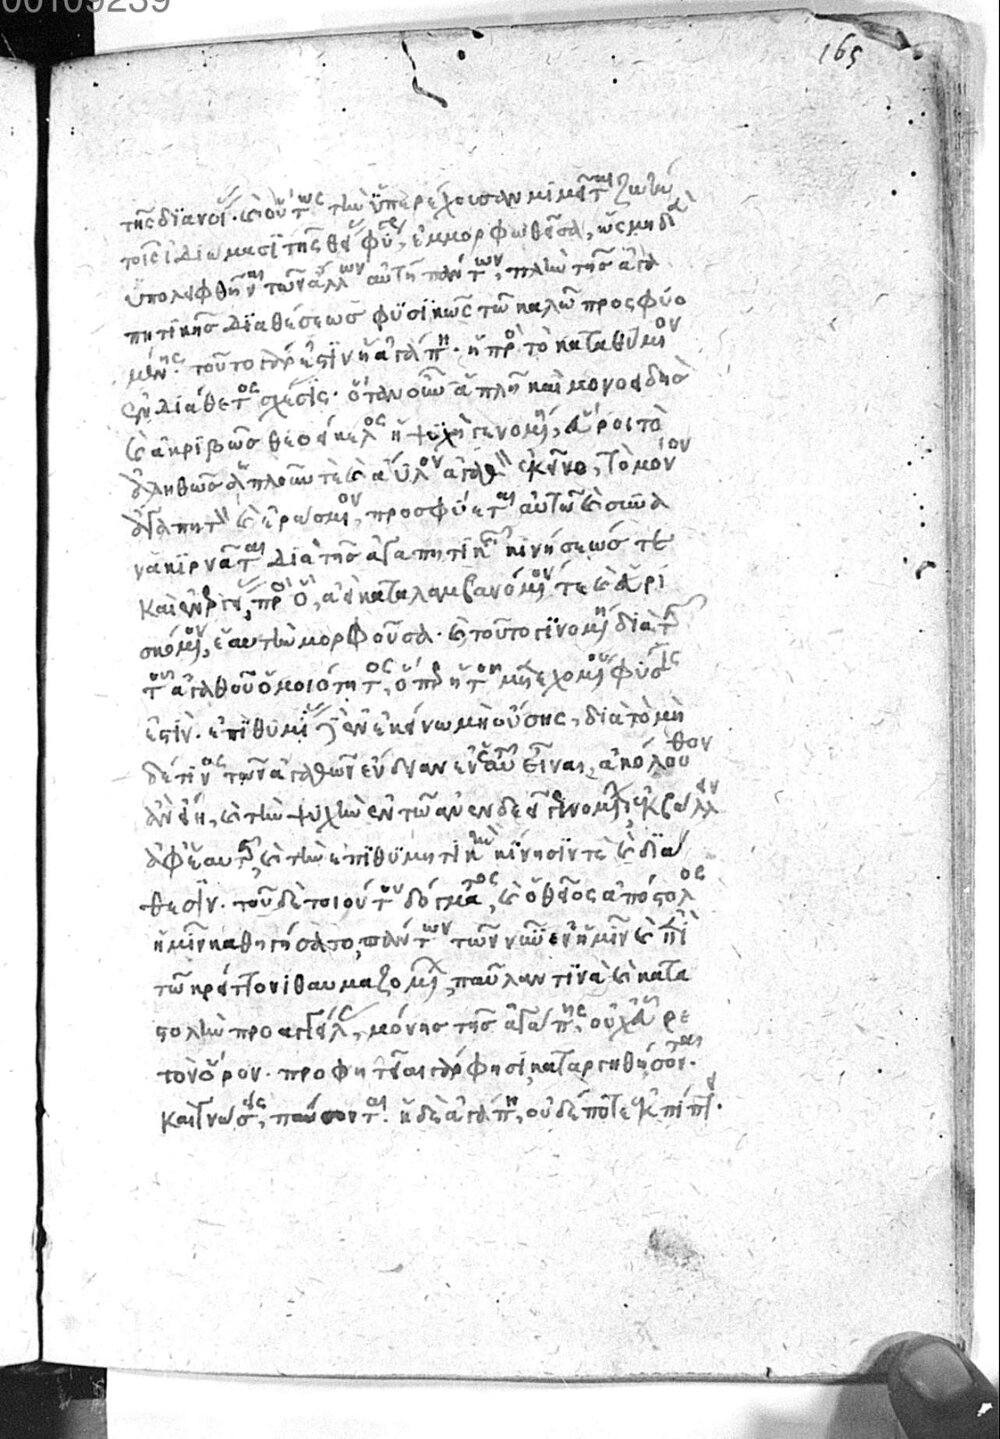 00109239
165
τῆς διανοί. καὶ οὕτως τὴν ὑπερέχουσαν μιμεῖται ζωὴν
τοῖς ἰδιώμασι τῆς θεί φύσεως, ἐμμορφωθεῖσα, ὡς μηδὲ
ὑπολειφθῆναι τῶν ἄλλων αὐτῇ πάντων, πλὴν τῆς ἀγα
πητικῆς διαθέσεως φυσικῶς τῶ καλῶ προσφυο
μένης. τοῦτο γάρ ἐστιν ἡ ἀγάπη. ἡ πρὸ τὸ καταθύμιον
ἐνδιάθετος σχέσις. ὅταν οὖν ἁπλῆ καὶ μονοειδὴς
καὶ ἀκριβῶς θεοείκελος ἡ ψυχὴ γενομένη, εὕροι τὸ
ἀληθῶς ἁπλοῦν τὲ καὶ ἄϋλον ἀγαθὸν ἐκεῖνο, τὸ μόνον
ἀγαπητὸν καὶ ἐράσμιον, προσφύεται αὐτῶ καὶ συνα
νακίρναται διὰ τῆς ἀγαπητικῆς κινήσεώς τε
καὶ ἐνεργείας, πρὸς ὃ, ἀεὶ καταλαμβανόμενόν τε καὶ εὑρι
σκόμενον, ἑαυτὴν μορφοῦσα. καὶ τοῦτο γινομένη διὰ τῆς
τοῦ ἀγαθοῦ ὁμοιότητος, ὅπερ ἡ τοῦ μετεχομένου φύσις
ἐστίν. ἐπιθυμίας ἐν ἐκείνω μὴ οὔσης, διὰ τὸ μὴ
δέ τινος τῶν ἀγαθῶν ἔνδειαν ἐν αὐτῶ εἶναι, ἀκόλουθον
ἂν εἴη, καὶ τὴν ψυχὴν ἐν τῶ ἀνενδεεῖ γινομένην, ἐκβάλλειν
ἀφ' ἑαυτῆς καὶ τὴν ἐπιθυμητικὴν κίνησίν τε καὶ διά
θεσιν. τοῦ δὲ τοιούτου δόγματος, καὶ ὁ θεῖος ἀπόστολος
ἡμῖν καθηγήσατο, πάντων τῶν νῦν ἐν ἡμῖν καὶ ἐπὶ
τῶ κρείττονι θαυμαζομένων, παῦλαν τινὰ καὶ κατα
στολὴν προαγγείλας, μόνης τῆς ἀγάπης, οὐχ εὗρε
τὸν ὅρον. προφητεῖαι γάρ φησι καταργηθήσονται.
καὶ γνώσεις, παύσονται. ἡ δὲ ἀγάπη, οὐδέποτε ἐκπίπτει.